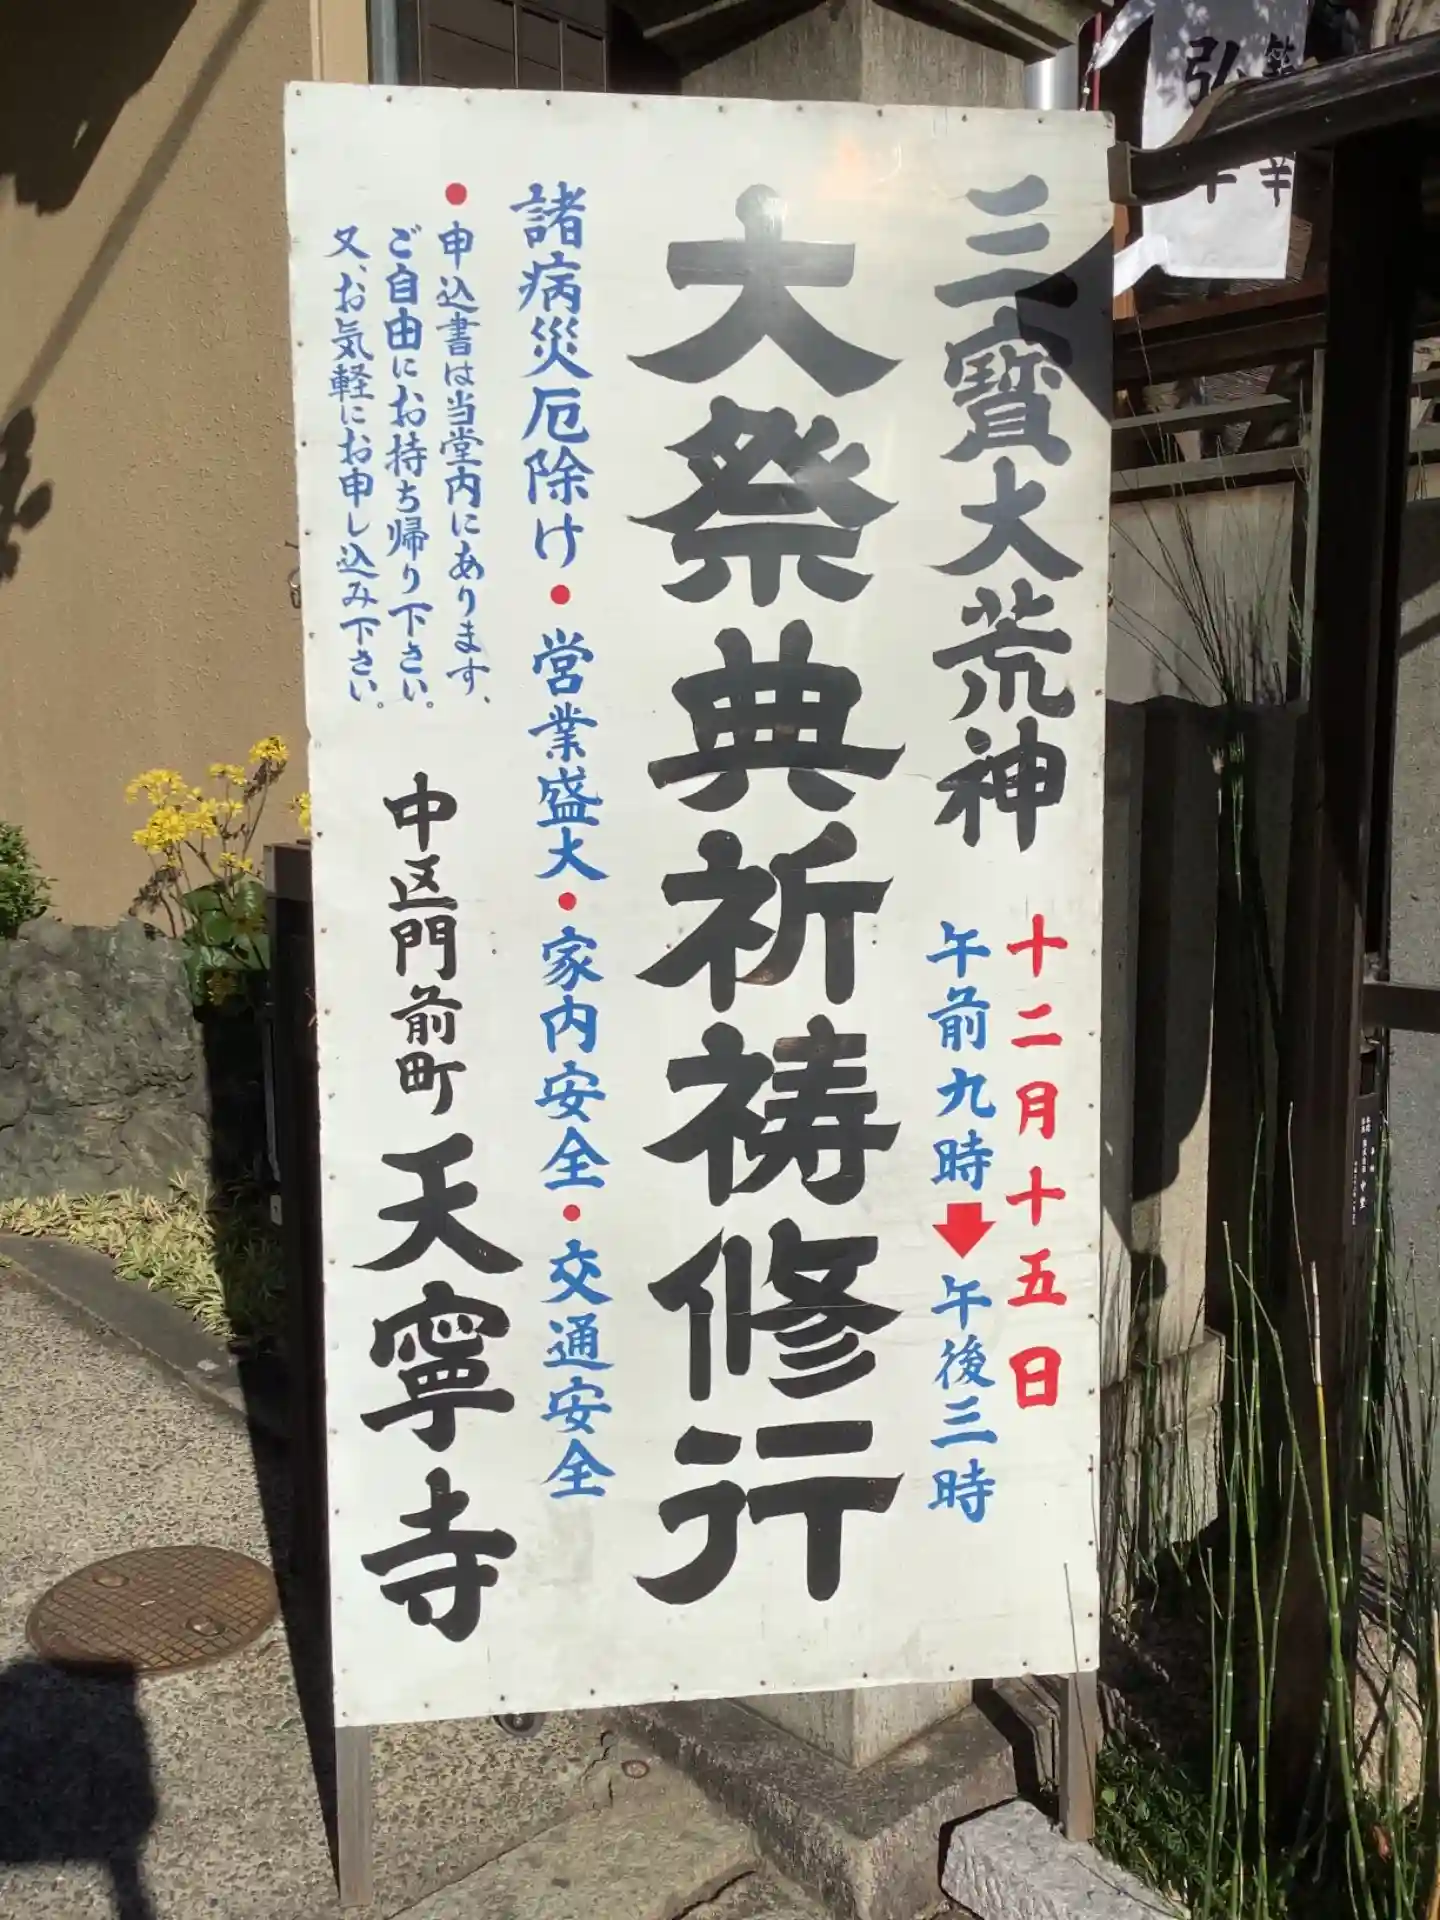 三寶大荒神
十二月十五日
午前九時
午後三時
大祭典祈祷修行
諸病災厄除け・営業盛大・家内安全・交通安全
●申込書は当堂内にあります、
ご自由にお持ち帰り下さい。
又、お気軽にお申し込み下さい。
中区門前町 天寧寺